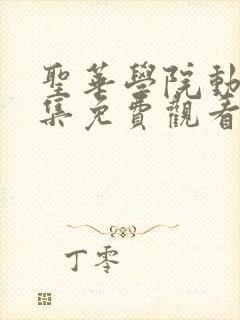 聖華學院動
集免費觀看
丁零